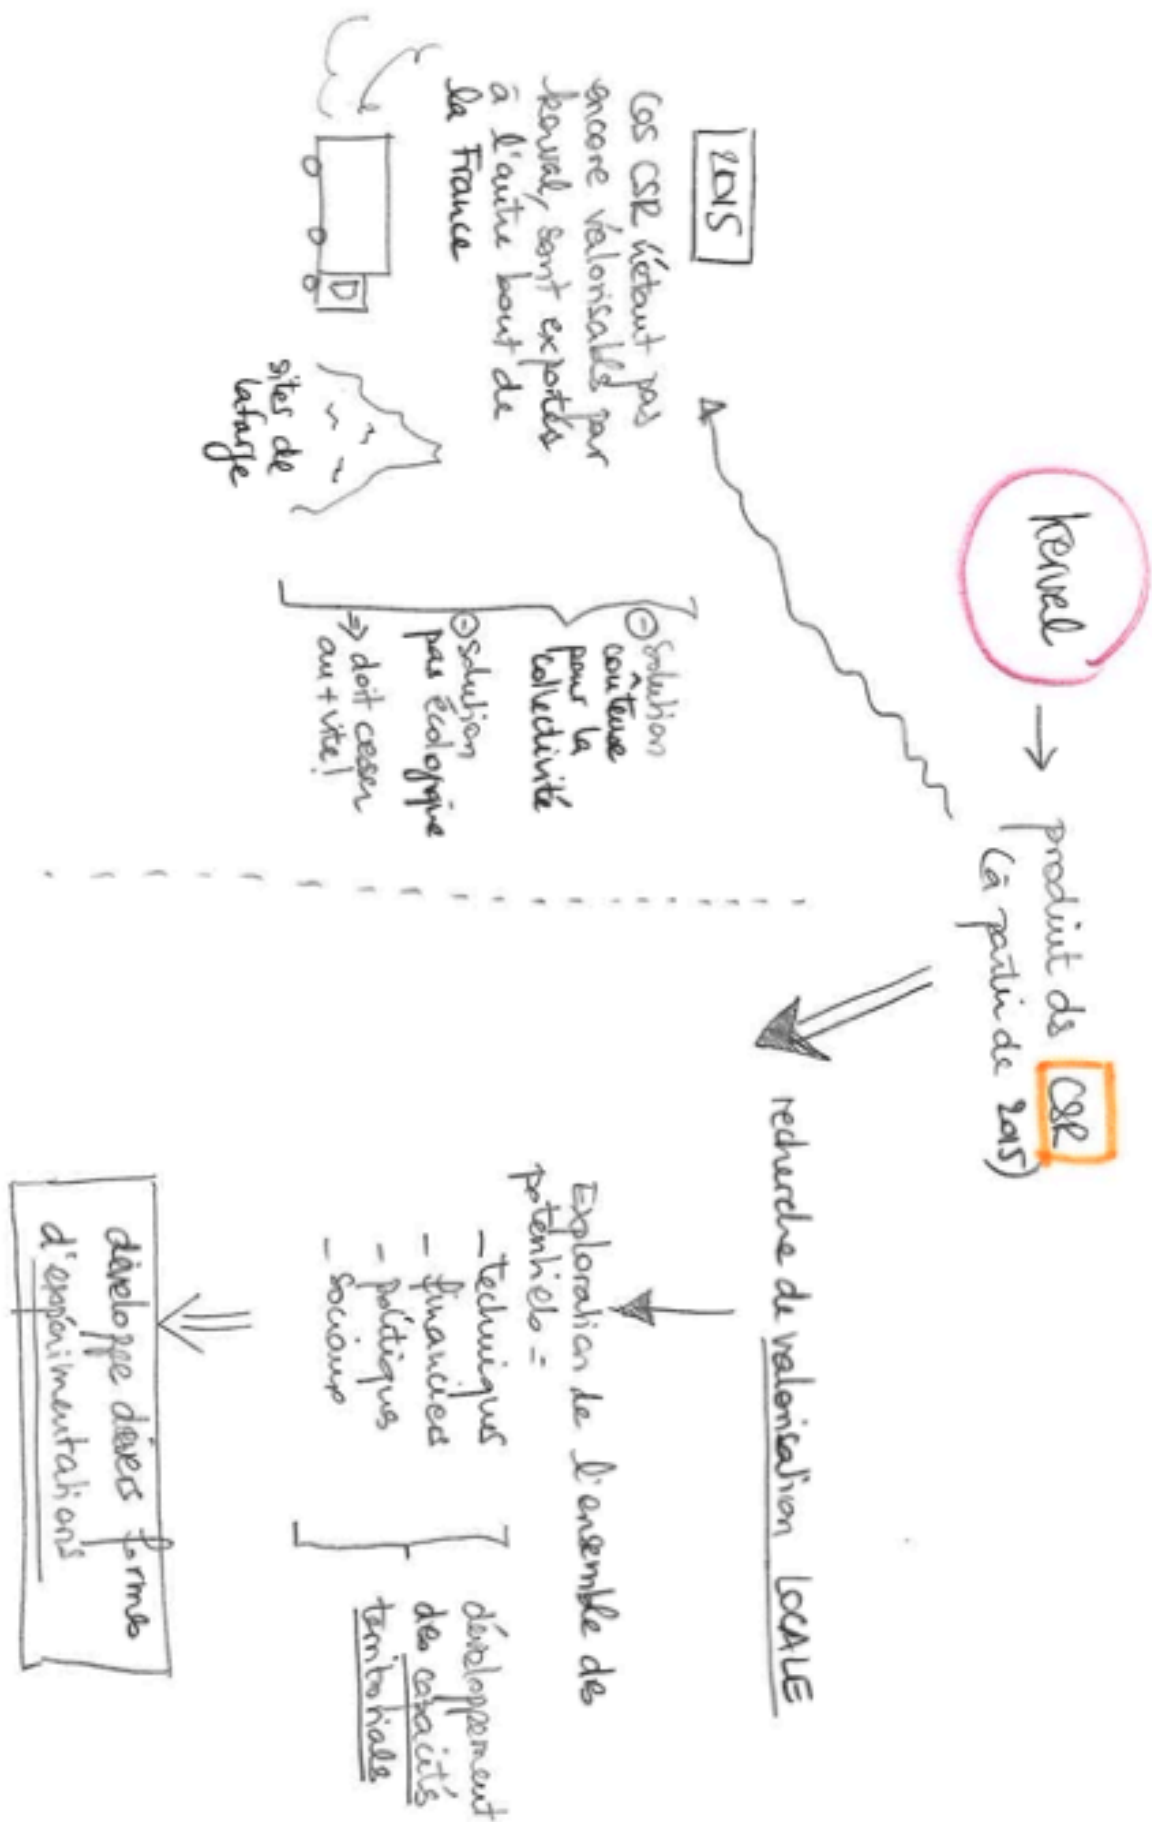 Kerval
→ produit ds CSR
(à partir de 2015)
2015
Ces CSR n'étant pas
encore valorisable par
kerval, sont exportés
à l'autre bout de
la France
D
sites de
lafarge
⊖ solution
coûteuse
pour la
collectivité
⊖ solution
pas écologique
⇒ doit cesser
au + vite!
recherche de valorisation LOCALE
Exploration de l'ensemble des
potentiels =
- techniques
- financiers
- politiques
- sociaux
développement
des capacités
territoriales
développe divers formes
d'expérimentations